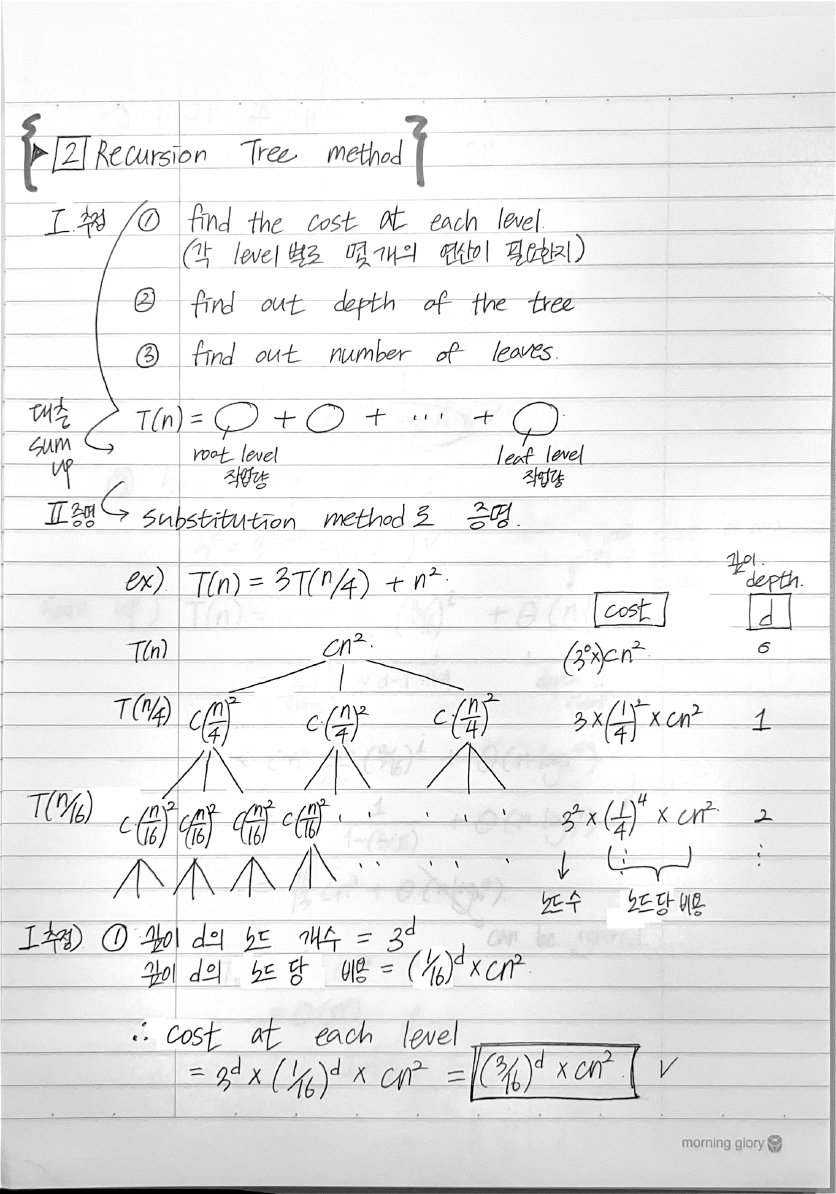 ▶ [2] Recursion Tree method
I. 추정 ① find the cost at each level.
(각 level 별로 몇개의 연산이 필요한지)
② find out depth of the tree
③ find out number of leaves.
대충 sum up
T(n) = ◯ + ◯ + ... + ◯
root level 작업량
leaf level 작업량
II 증명 → substitution method로 증명.
ex) T(n) = 3T(n/4) + n².
cost
깊이. depth. d
T(n) cn². (3⁰×)cn². 0
T(n/4) c(n/4)² c·(n/4)² c·(n/4)² 3×(1/4)²×cn² 1
T(n/16) c·(n/16)² c(n/16)² c(n/16)² c(n/16)² · · · · · 3²×(1/4)⁴×cn². 2
노드수 노드당 비용
I 추정) ① 깊이 d의 노드 개수 = 3ᵈ
깊이 d의 노드 당 비용 = (1/16)ᵈ×cn².
∴ cost at each level
= 3ᵈ × (1/16)ᵈ × cn² = (3/16)ᵈ × cn². ✓
morning glory